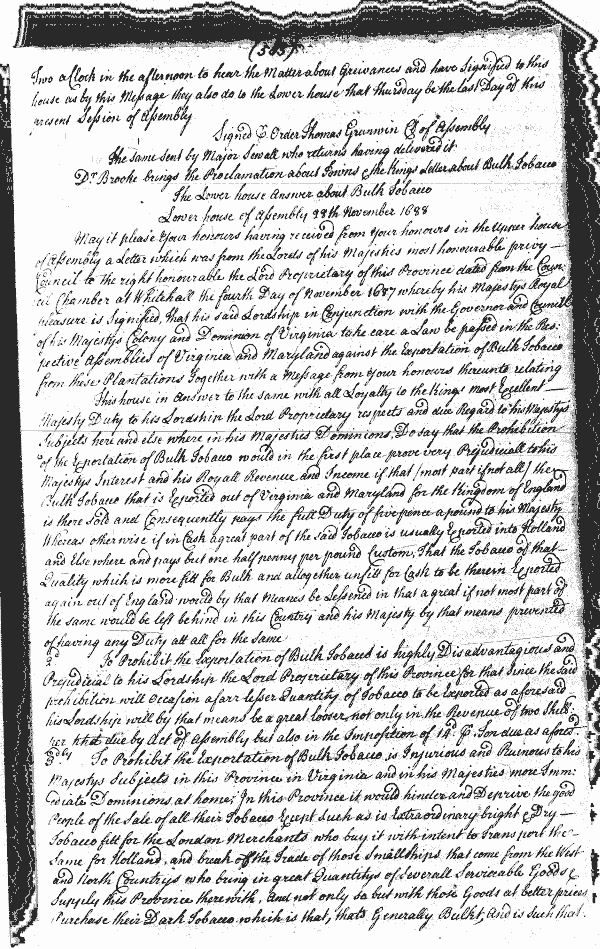 (565)
Two a Clock in the afternoon to hear the Matter about Greivances and have Signified to this
house as by this Message they also do to the Lower house that Thursday be the last Day of this
present Session of Assembly
Signed P Order Thomas Grunwin Cl of Assembly
The same sent by Major Sewall who returns having delivered it
Dr Brooke brings the Proclamation about Towns & the Kings Letter about Bulk Tobacco
The Lower house Answer about Bulk Tobaco
Lower house of Assembly 28th November 1688
May it please Your honours having received from Your honours in the Upper house
of Assembly a Letter which was from the Lords of his Majesties most honourable privy
Council to the right honourable the Lord Proprietary of this Province dated from the Coun
cil Chamber at Whitehall the fourth Day of November 1687 whereby his Majestys Royal
pleasure is Signified, that his said Lordship in Conjunction with the Governor and Council
of his Majestys Colony and Dominion of Virginia take care a Law be passed in the Res:
pective Assemblies of Virginia and Maryland against the Exportation of Bulk Tobacco
from these Plantations Together with a Message from Your honours thereunto relating
This house in Answer to the same with all Loyalty to the Kings most Excellent
Majesty Duty to his Lordship the Lord Proprietary respects and due Regard to his Majestys
Subjects here and else where in his Majesties Dominions, Do say that the Prohibition
of the Exportation of Bulk Tobaco would in the first place prove very Prejudiciall to his
Majestys Interest and his Royall Revenue and Income if that (most part if not all) the
Bulk Tobaco that is Exported out of Virginia and Maryland for the Kingdom of England
is there Sold and Consequently pays the full Duty of five pence a pound to his Majesty
Whereas otherwise if in Cask a great part of the said Tobaco is usually Exported into Holland
and Elsewhere and pays but one half penny per pound Custom, That the Tobaco of that
Quality which is more fitt for Bulk and altogether unfitt for Cask to be therein Exported
again out of England would by that Means be Lessened in that a great if not most part of
the same would be left behind in this Country and his Majesty by that means prevented
of having any Duty at all for the same
2d To Prohibit the Exportation of Bulk Tobaco is highly Disadvantagious and
Prejudicial to his Lordship the Lord Proprietary of this Province for that Since the said
prohibition will Occasion a farr lesser Quantity of Tobacco to be Exported as aforesaid
his Lordship will by that means be a great looser not only in the Revenue of two Shill:
per due by Act of Assembly but also in the Imposition of 14d P Ton due as afores
3dly To Prohibit the Exportation of Bulk Tobaco is Injurious and Ruinous to his
Majestys Subjects in this Province in Virginia and in his Majesties more Imm
ediate Dominions at home; In this Province it would hinder and Deprive the good
People of the Sale of all their Tobaco Except Such as is Extraordinary bright & Dry
Tobaco fitt for the London Merchants who buy it with intent to Transport the
Same for Holland, and break off the Trade of those Small Ships that come from the West
and North Countrys who bring in great Quantitys of Severall Serviceable Goods &
Supply this Province therewith, and not only so but with those Goods at better prices
Purchase their Dark Tobaco which is that, thats Generally Bulkt, And is such that